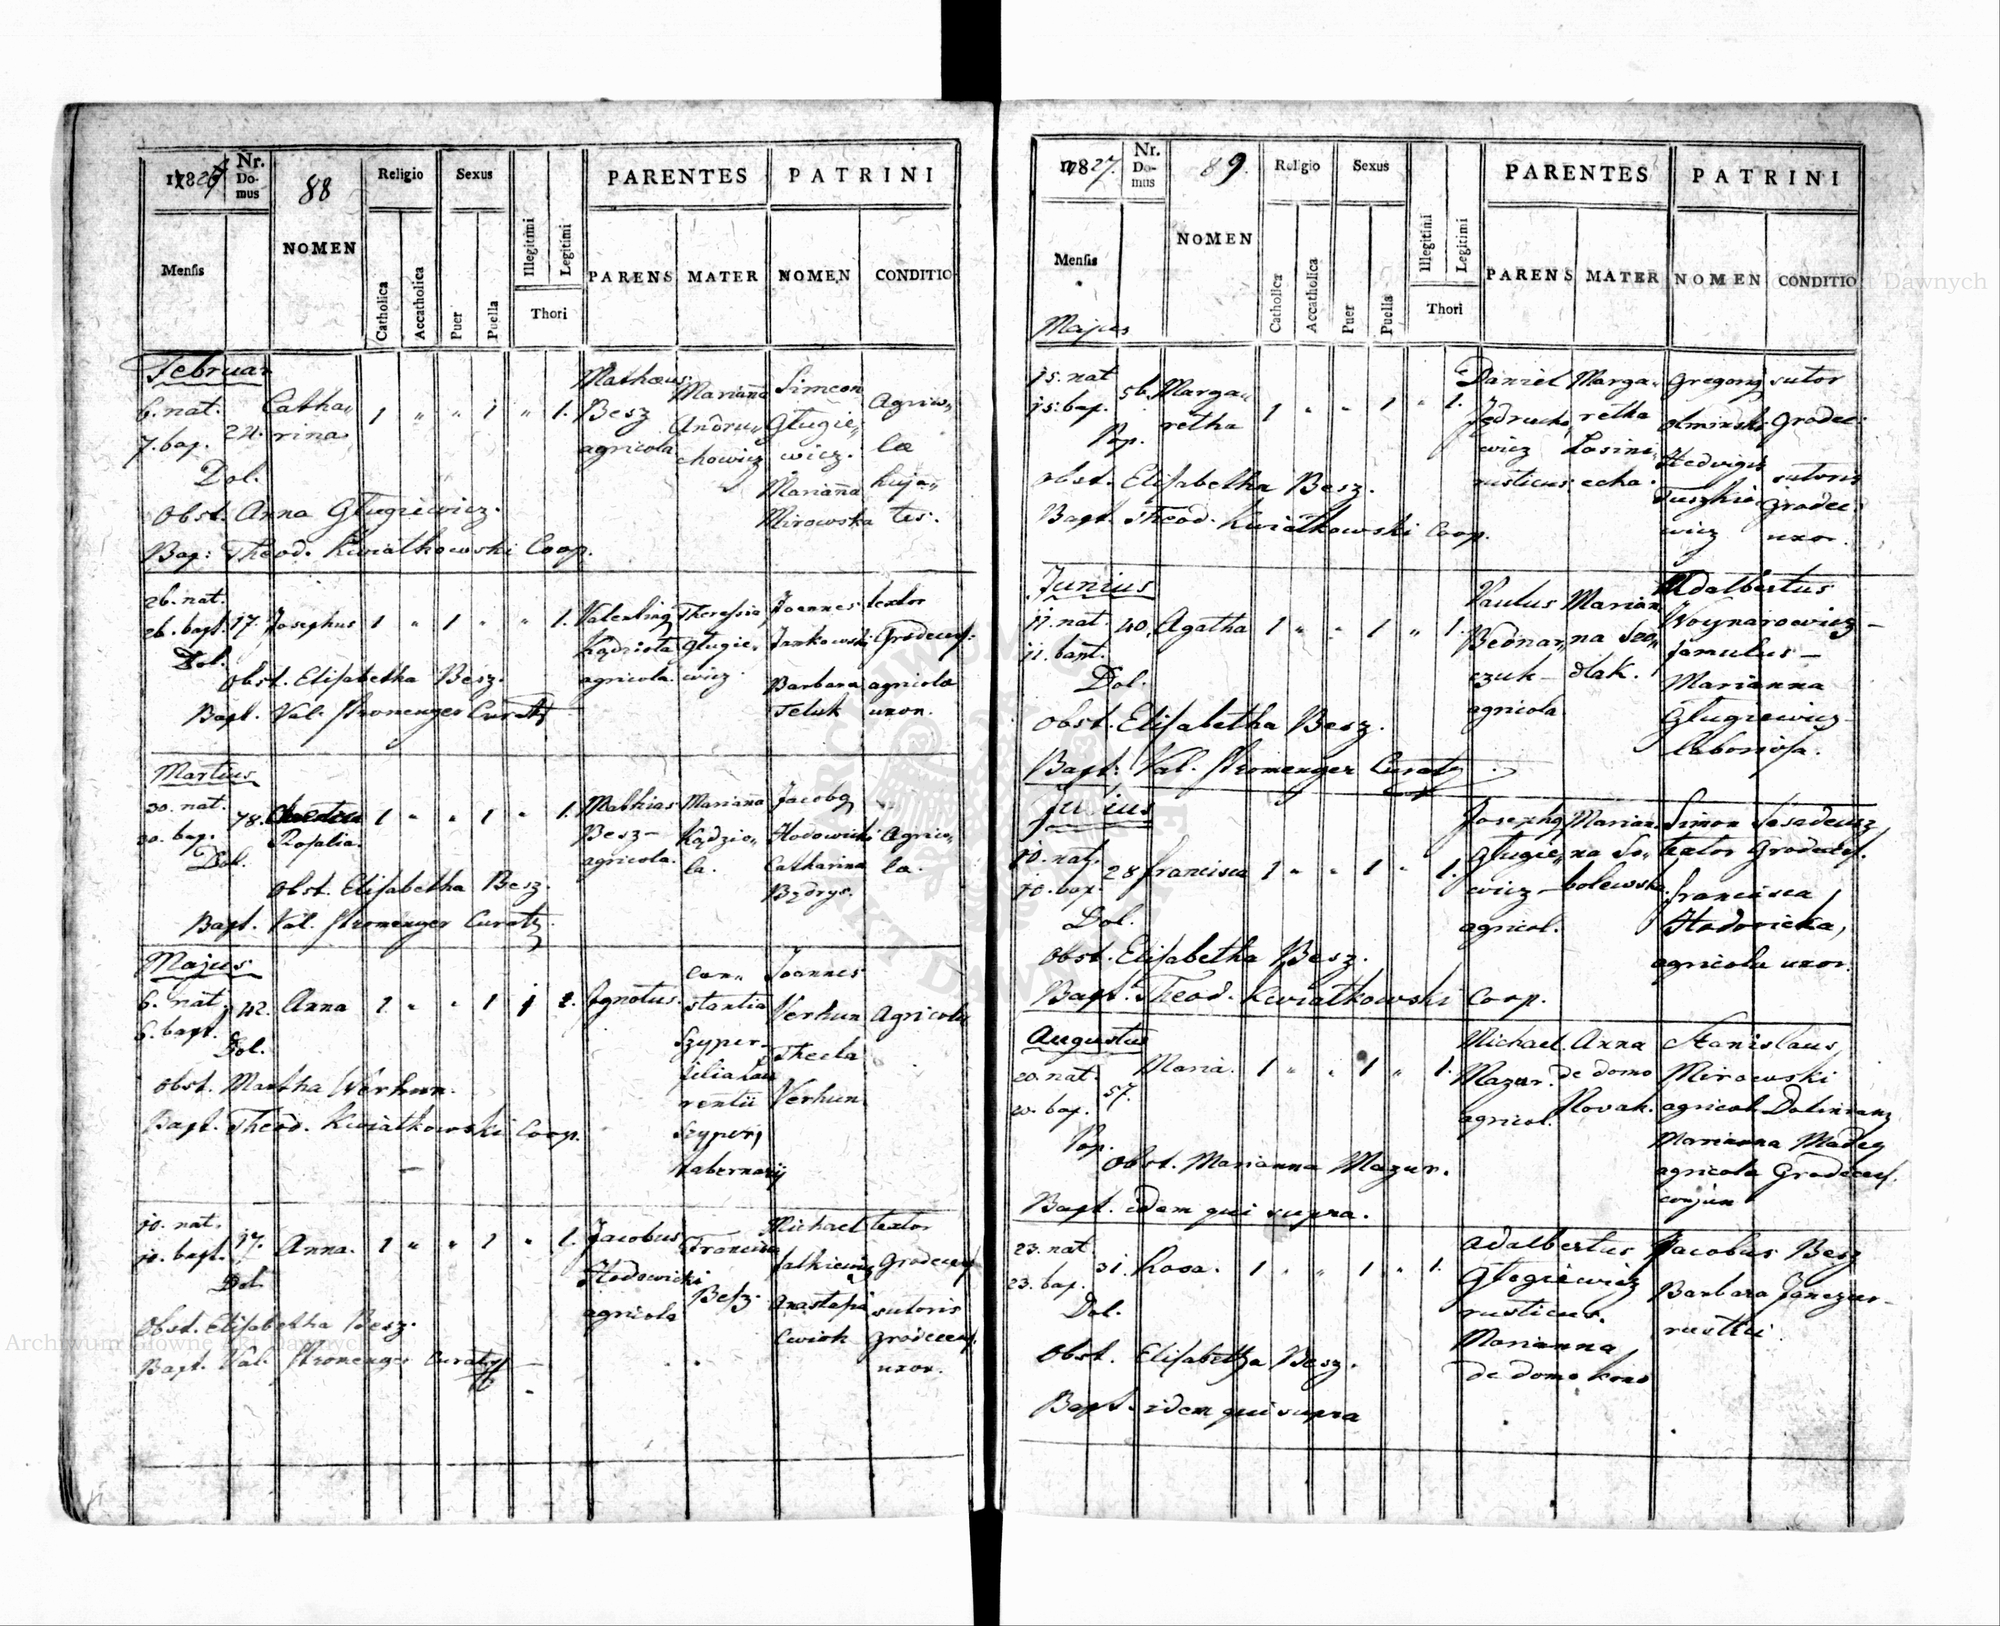 1827
Nr. Domus
88
NOMEN
Religio
Sexus
PARENTES
PATRINI
Mensis
Catholica
Accatholica
Puer
Puella
Illegitimi
Legitimi
Thori
PARENS
MATER
NOMEN
CONDITIO
Februar
6. nat.
7. bap.
24.
Catha„
rina
1 „ „ 1 „ 1.
Mathæus
Besz
agricola
Marianna
Andru„
chowicz
Simeon
Gługie„
wicz.
Marianna
Mirowska
Agrico„
læ
huja„
tes.
Dol.
Obst. Anna Gługiewicz.
Bap: Theod. Kwiatkowski Coop.
26. nat.
26. bapt.
17.
Josephus
1 „ 1 „ „ 1.
Kądziola
agricola
Theressia
Gługie„
wicz.
Joannes
Jankowski
Barbara
Teluk
textor
Grodecens:
agricola
uxor.
Dol.
Obst. Elisabetha Besz.
Bapt. Val. Stromenger Curatus
Martius
30. nat.
30. bap.
78.
Rosalia.
1 „ „ 1 „ 1.
Mathias
Besz
agricola.
Marianna
Kądzio„
la.
Jacobus
Hodowicki
Catharina
Bądrys.
Agrico„
la.
Dol.
Obst. Elisabetha Besz.
Bapt. Val. Stromenger Curatus
Majus
6. nat.
6. bapt.
42.
Anna
1 „ „ 1 1
Ignotus.
Con„
stantia
Szyper
filia Lau
rentii
Szyper,
tabernarij
Joannes
Verhun
Thecla
Verhun
Agricola
Dol.
Obst. Martha Werhun.
Bapt. Theod. Kwiatkowski Coop.
10. nat.
10. bapt.
17.
Anna.
1 „ „ 1 „ 1.
Jacobus
Hodowicki
agricola
Francisca
Besz.
Michael
Falkiewicz
Anastasia
Cwiok
textor
Grodecens
sutoris
Grodecens.
uxor.
Dol.
Obst. Elisabetha Besz.
Bapt. Val. Stromenger Curatus
1827.
Nr. Domus
89.
NOMEN
Religio
Sexus
PARENTES
PATRINI
Mensis
Catholica
Accatholica
Puer
Puella
Illegitimi
Legitimi
Thori
PARENS
MATER
NOMEN
CONDITIO
Majus
15. nat
15. bap.
56.
Marga„
retha
1 „ „ 1 „ 1.
Daniel
Jędrucho„
wicz
rusticus
Marga„
retha
Losini„
echa.
Gregorius
Olminski
Hedvigis
Tuszkie
wicz
sutor
Grodec:
sutoris
Grodec:
uxor.
Pop.
Obst. Elisabetha Besz.
Bapt. Theod. Kwiatkowski Coop.
Junius
11. nat
11. bapt.
40.
Agatha
1 „ „ 1 „ 1.
Paulus
Bednar„
czuk
agricola
Marian
na Szo„
dlak.
Adalbertus
Woynarowicz
famulus
Marianna
Gługiewicz
laboriosa.
Dol.
Obst. Elisabetha Besz.
Bapt: Val. Stromenger Curatus
Julius
10. nat.
10. bap.
28
Francisca
1 „ „ 1 „ 1.
Josephus
Gługie„
wicz
agricol.
Marian
na So„
bolewska.
Simon Sasadeusz
textor Grodecens.
Francisca
Hodovicka,
agricola uxor.
Dol.
Obst. Elisabetha Besz.
Bapt. Theod. Kwiatkowski Coop.
Augustus
20. nat.
20. bap.
57.
Maria.
1 „ „ 1 „ 1.
Michael
Mazur.
agricol.
Anna
de domo
Novak.
Stanislaus
Mirowski
agricol. Dolinianz
Marianna Madey
agricola Grodecens.
conjux
Pop.
Obst. Marianna Mazur.
Bapt. idem qui supra.
23. nat.
23. bap.
31.
Rosa.
1 „ „ 1 „ 1.
Adalbertus
Głogiewicz
rusticus.
Marianna
de domo
Jacobus Besz
Barbara Janczur
rustici
Dol.
Obst. Elisabetha Besz.
Bapt. idem qui supra
Archiwum Główne Akt Dawnych